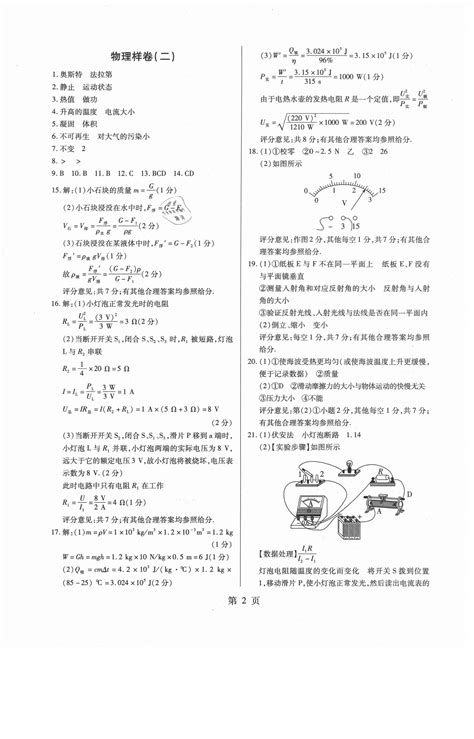 物理样卷(二)
1. 奥斯特 法拉第
2. 静止 运动状态
3. 热值 做功
4. 升高的温度 电流大小
5. 凝固 体积
6. 不可再生 对大气的污染小
7. 不变 2
8. > >
9. B 10. B 11. B 12. C 13. BCD 14. CD
15. 解:(1)小石块的质量 m=G/g(1分)
(2)小石块浸没在水中时,F浮=G-F₁
V石=V排=F浮/ρ水g=(G-F₁)/ρ水g(2分)
(3)小石块浸没在某液体中时,F浮′=G-F₂(1分)
F浮′=ρ液gV排(1分)
故ρ液=F浮′/gV排=(G-F₂)ρ水/(G-F₁)(2分)
评分意见:共7分;有其他合理答案均参照给分.
16. 解:(1)小灯泡正常发光时的电阻
R_L=U_L²/P_L=(3 V)²/3 W=3 Ω(2分)
(2)当断开开关S₁,闭合S、S₂、S₃时,R₁被短路,灯泡
L与R₂串联
R₂=1/4×20 Ω=5 Ω
I=I_L=P_L/U_L=3 W/3 V=1 A
U总=IR总=I(R₂+R_L)=1 A×(5 Ω+3 Ω)=8 V
(2分)
(3)当断开开关S₂,闭合S、S₁、S₃,滑片P移到a端时,
小灯泡L与R₁并联,小灯泡两端的实际电压为8 V,
远大于它的额定电压3 V,故小灯泡将被烧坏,电压表
示数为8 V.(2分)
此时电路中只有电阻R₁在工作
R₁=U/I₁=8 V/2 A=4 Ω(1分)
评分意见:共7分;有其他合理答案均参照给分.
17. 解:(1)m=ρV=1×10³ kg/m³×1.2×10⁻³m³=1.2 kg
(1分)
W=Gh=mgh=1.2 kg×10 N/kg×0.5 m=6 J(1分)
(2)Q吸=cmΔt=4.2×10³ J/(kg·℃)×1.2 kg×
(85-25) ℃=3.024×10⁵ J(2分)
(3)W′=Q吸/η=3.024×10⁵ J/96%=3.15×10⁵ J(1分)
P实=W′/t=3.15×10⁵ J/315 s=1000 W(1分)
由于电热水壶的发热电阻R是一个定值,即U实²/P实=U额²/P额
U实=√((220 V)²/1210 W×1000 W)=200 V(2分)
评分意见:共8分;有其他合理答案均参照给分.
18. (1)①校零 ②0~2.5 N 乙 ③2 26
(2)如图所示
0 5 10 15
0 1 2 3
V
- 3 15
评分意见:作图2分,其他每空1分,共7分;有其他
合理答案均参照给分.
19. (1)①纸板E与F不在同一平面上 纸板E、F没有
与平面镜垂直
②测量入射角和对应反射角的大小 反射角与入射
角的大小
③验证反射光线、入射光线与法线是否在同一平面内
(2)倒立、缩小 变小
评分意见:每空1分,共7分;有其他合理答案均参照
给分.
20. (1)①使海波受热更均匀(或使海波温度上升更缓慢,
便于记录数据) ②质量
(2)①D ②滑动摩擦力的大小与物体运动的快慢无关
③压力 大小 ④不能
评分意见:第(2)小题第①小题2分,其他每空1分,共7分;
有其他合理答案均参照给分.
21. (1)伏安法 小灯泡断路 1.14
(2)【实验步骤】如图所示
A D
【数据处理】I₁R/(I₂-I₁)
灯泡电阻随温度的变化而变化 将开关S拨到位置
1,移动滑片P,使小灯泡正常发光,然后读出电流表的
第 2 页